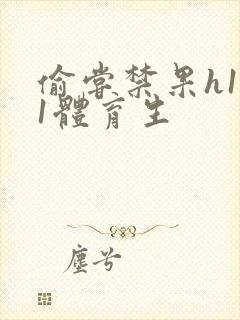 偷嘗禁果h1
1體育生
塵兮